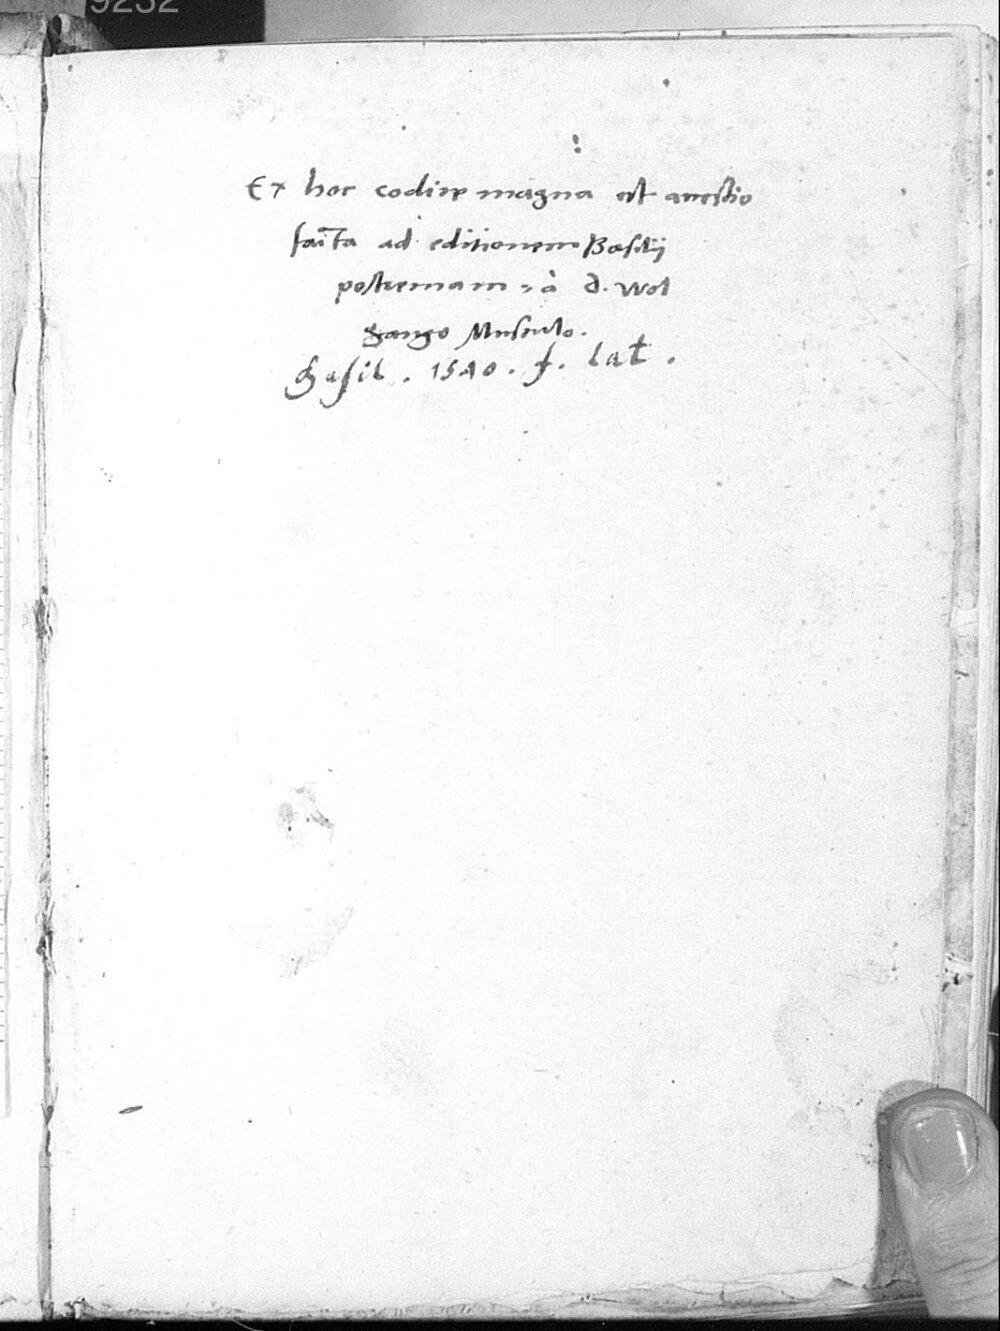 9232
Ex hoc codice magna est accessio
facta ad editionem Basilij
postremam, à d. Wol
gango Musculo.
Basil. 1540. f. lat.